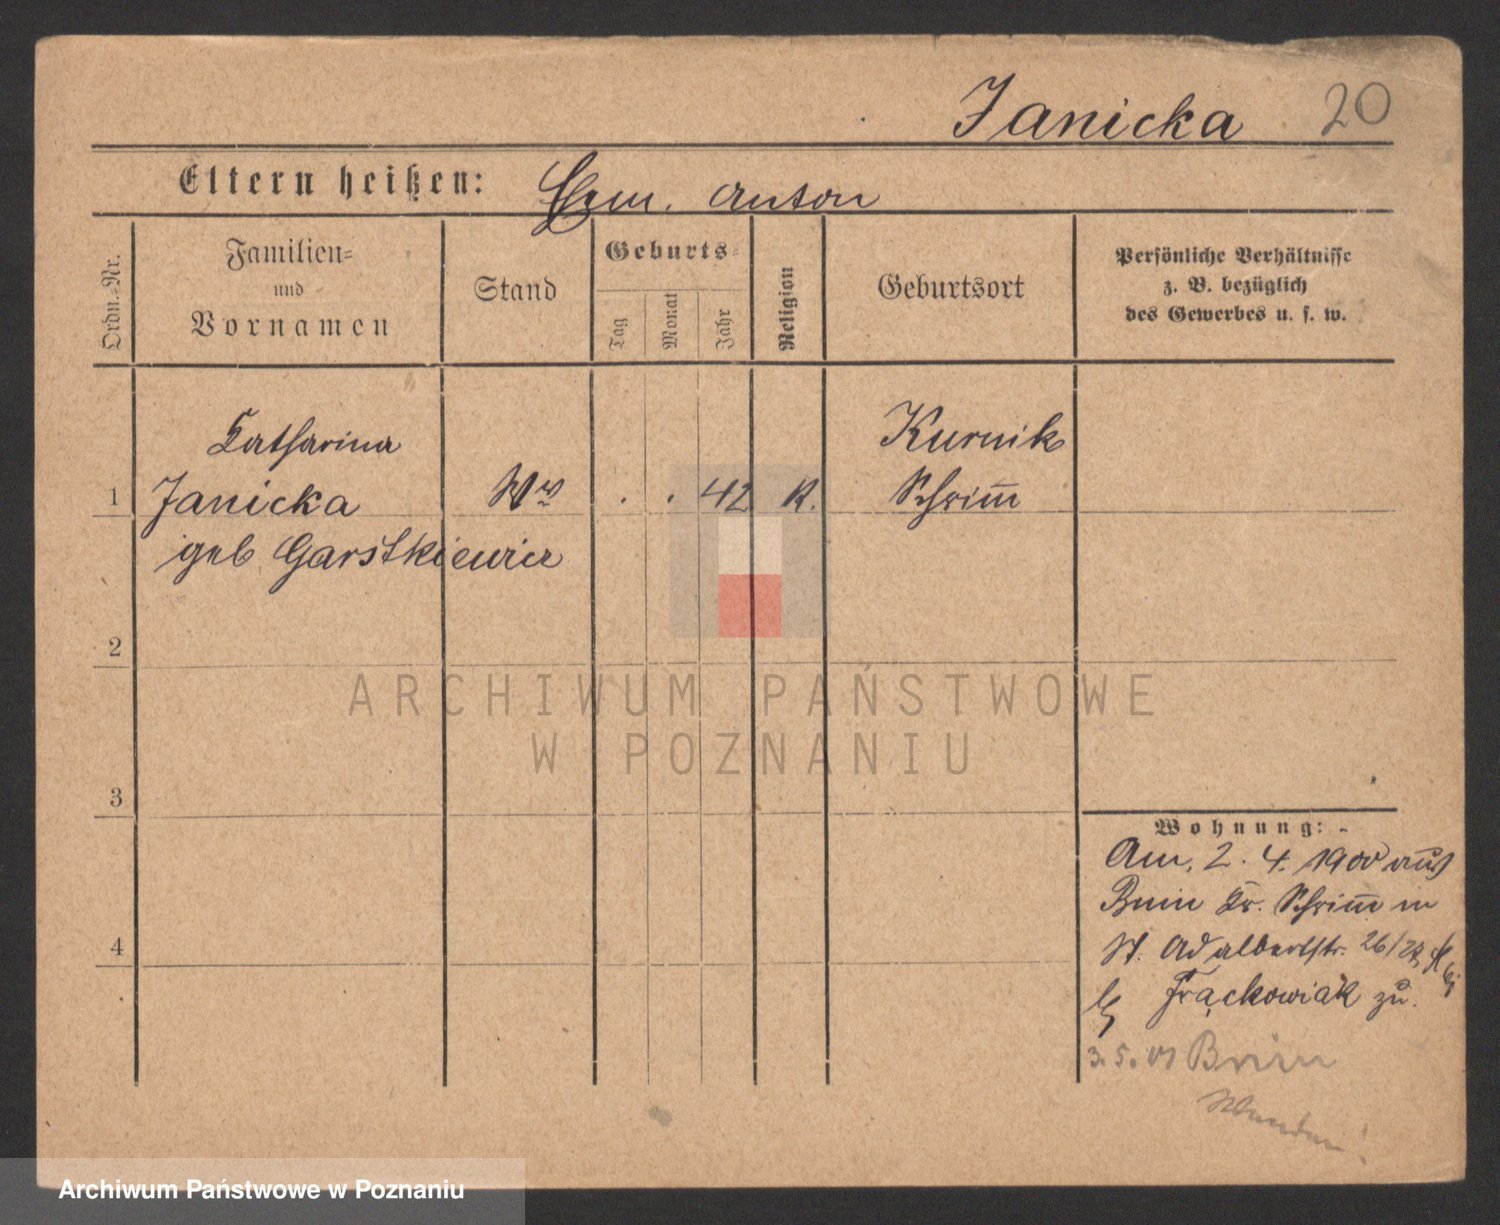 Janicka 20
Eltern heißen: Anton
Ordn.-Nr.
Familien-
und
Vornamen
Stand
Geburts-
Tag
Monat
Jahr
Religion
Geburtsort
Persönliche Verhältnisse
z. B. bezüglich
des Gewerbes u. s. w.
Catharina
1 Janicka Ww . . 42 K.
geb Garstkiewicz
Kurnik
Schrim̅
2
3
4
Wohnung:
Am. 2. 4. 1900 aus
Bnin Kr. Schrim̅ in
St. Adalbertstr. 26/27
Frąckowiak zu.
3. 5. 01 Bnin
ARCHIWUM PAŃSTWOWE
W POZNANIU
Archiwum Państwowe w Poznaniu